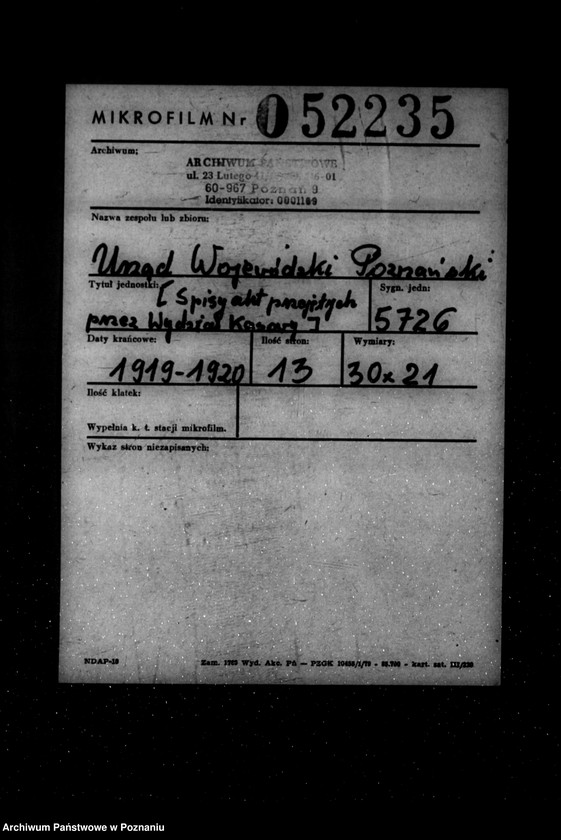 MIKROFILM Nr 052235
Archiwum:
ARCHIWUM PAŃSTWOWE
ul. 23 Lutego
60-967 Poznań 9
Identyfikator: 0001189
Nazwa zespołu lub zbioru:
Urząd Wojewódzki Poznański
Tytuł jednostki: [Spisy akt przejętych
przez Wydział Kasary]
Sygn. jedn:
5726
Daty krańcowe:
1919-1920
Ilość stron:
13
Wymiary:
30x21
Ilość klatek:
Wypełnia k. t. stacji mikrofilm.
Wykaz stron niezapisanych:
NDAP-18
Zam. 1969 Wyd. Akc. Pń — PZGK
kart. sat. III/220
Archiwum Państwowe w Poznaniu